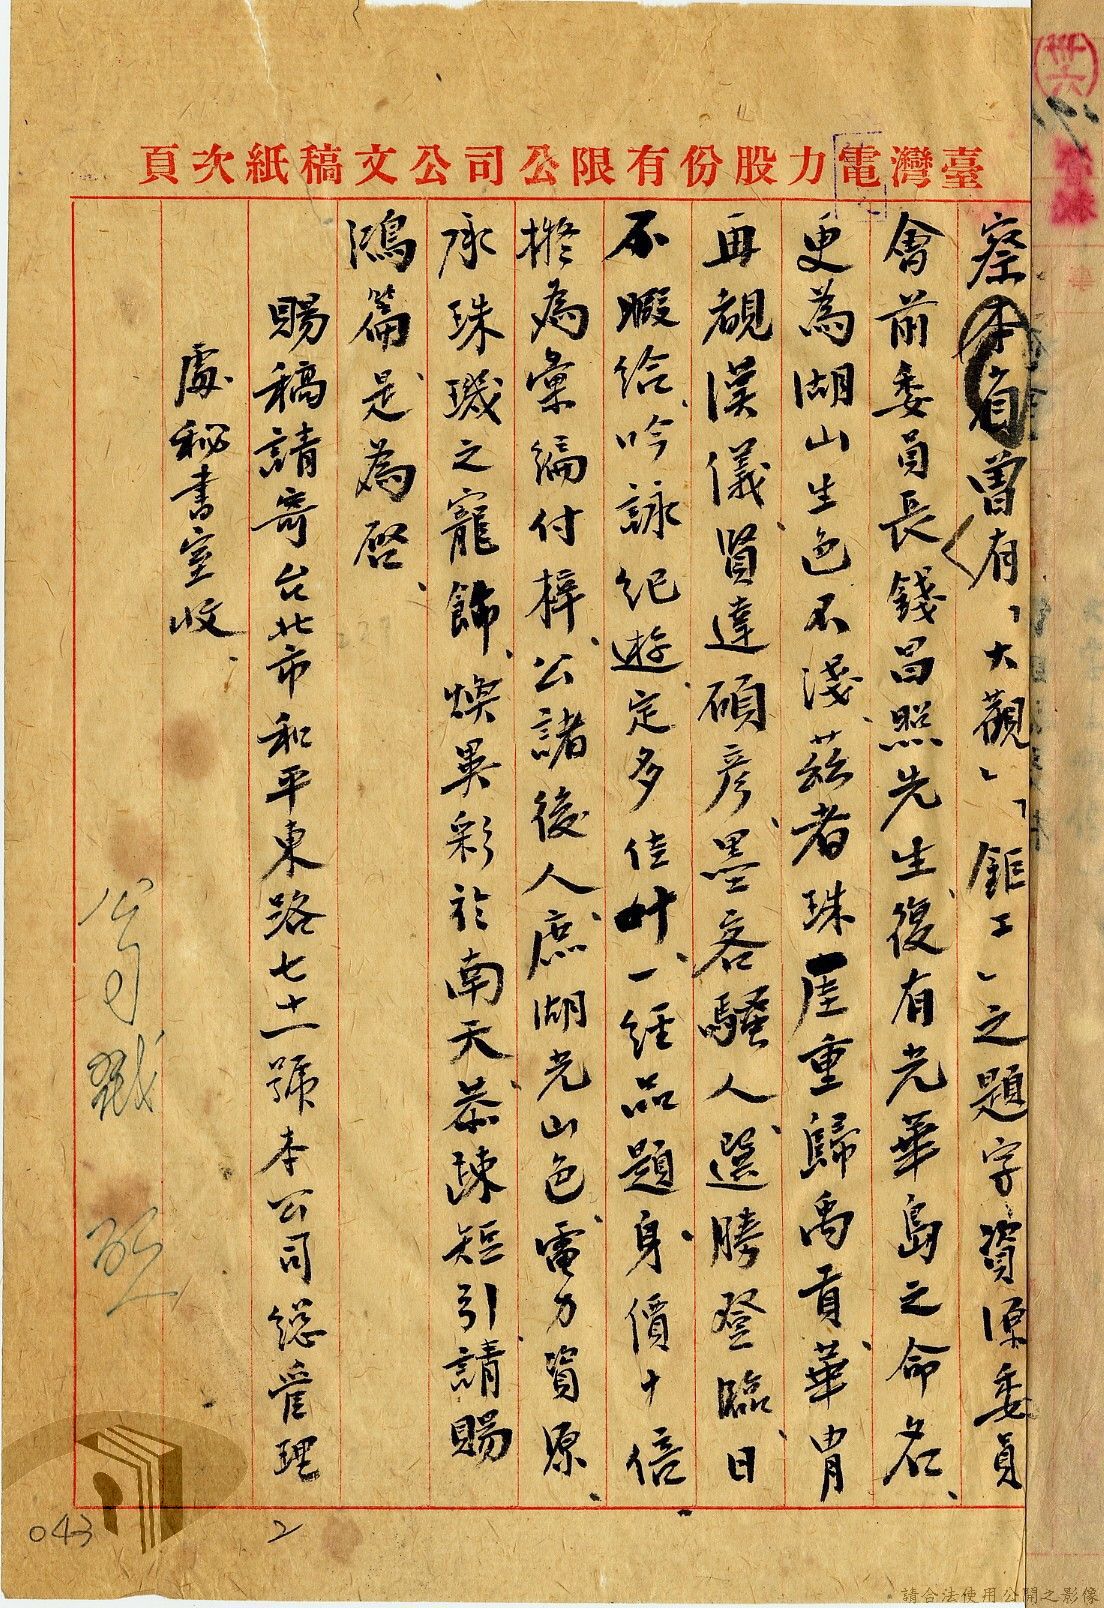 臺灣電力股份有限公司公文稿紙次頁
察本省曾有「大觀」「鉅工」之題字資源委員
會前委員長錢昌照先生復有光華島之命名、
更為湖山生色不淺、茲者珠崖重歸禹貢華胄
再覩漢儀、賢達碩彥、墨客騷人、選勝登臨、日
不暇給、吟詠紀遊、定多佳什、一經品題、身價十倍
擬為彙編付梓、公諸後人、庶湖光山色、電力資源、
承珠璣之寵飾、煥異彩於南天、恭疎短引請賜
鴻篇是為啓、
賜稿請寄台北市和平東路七十一號本公司總管理
處秘書室收、
公司戳 啟
043
2
請合法使用公開之影像